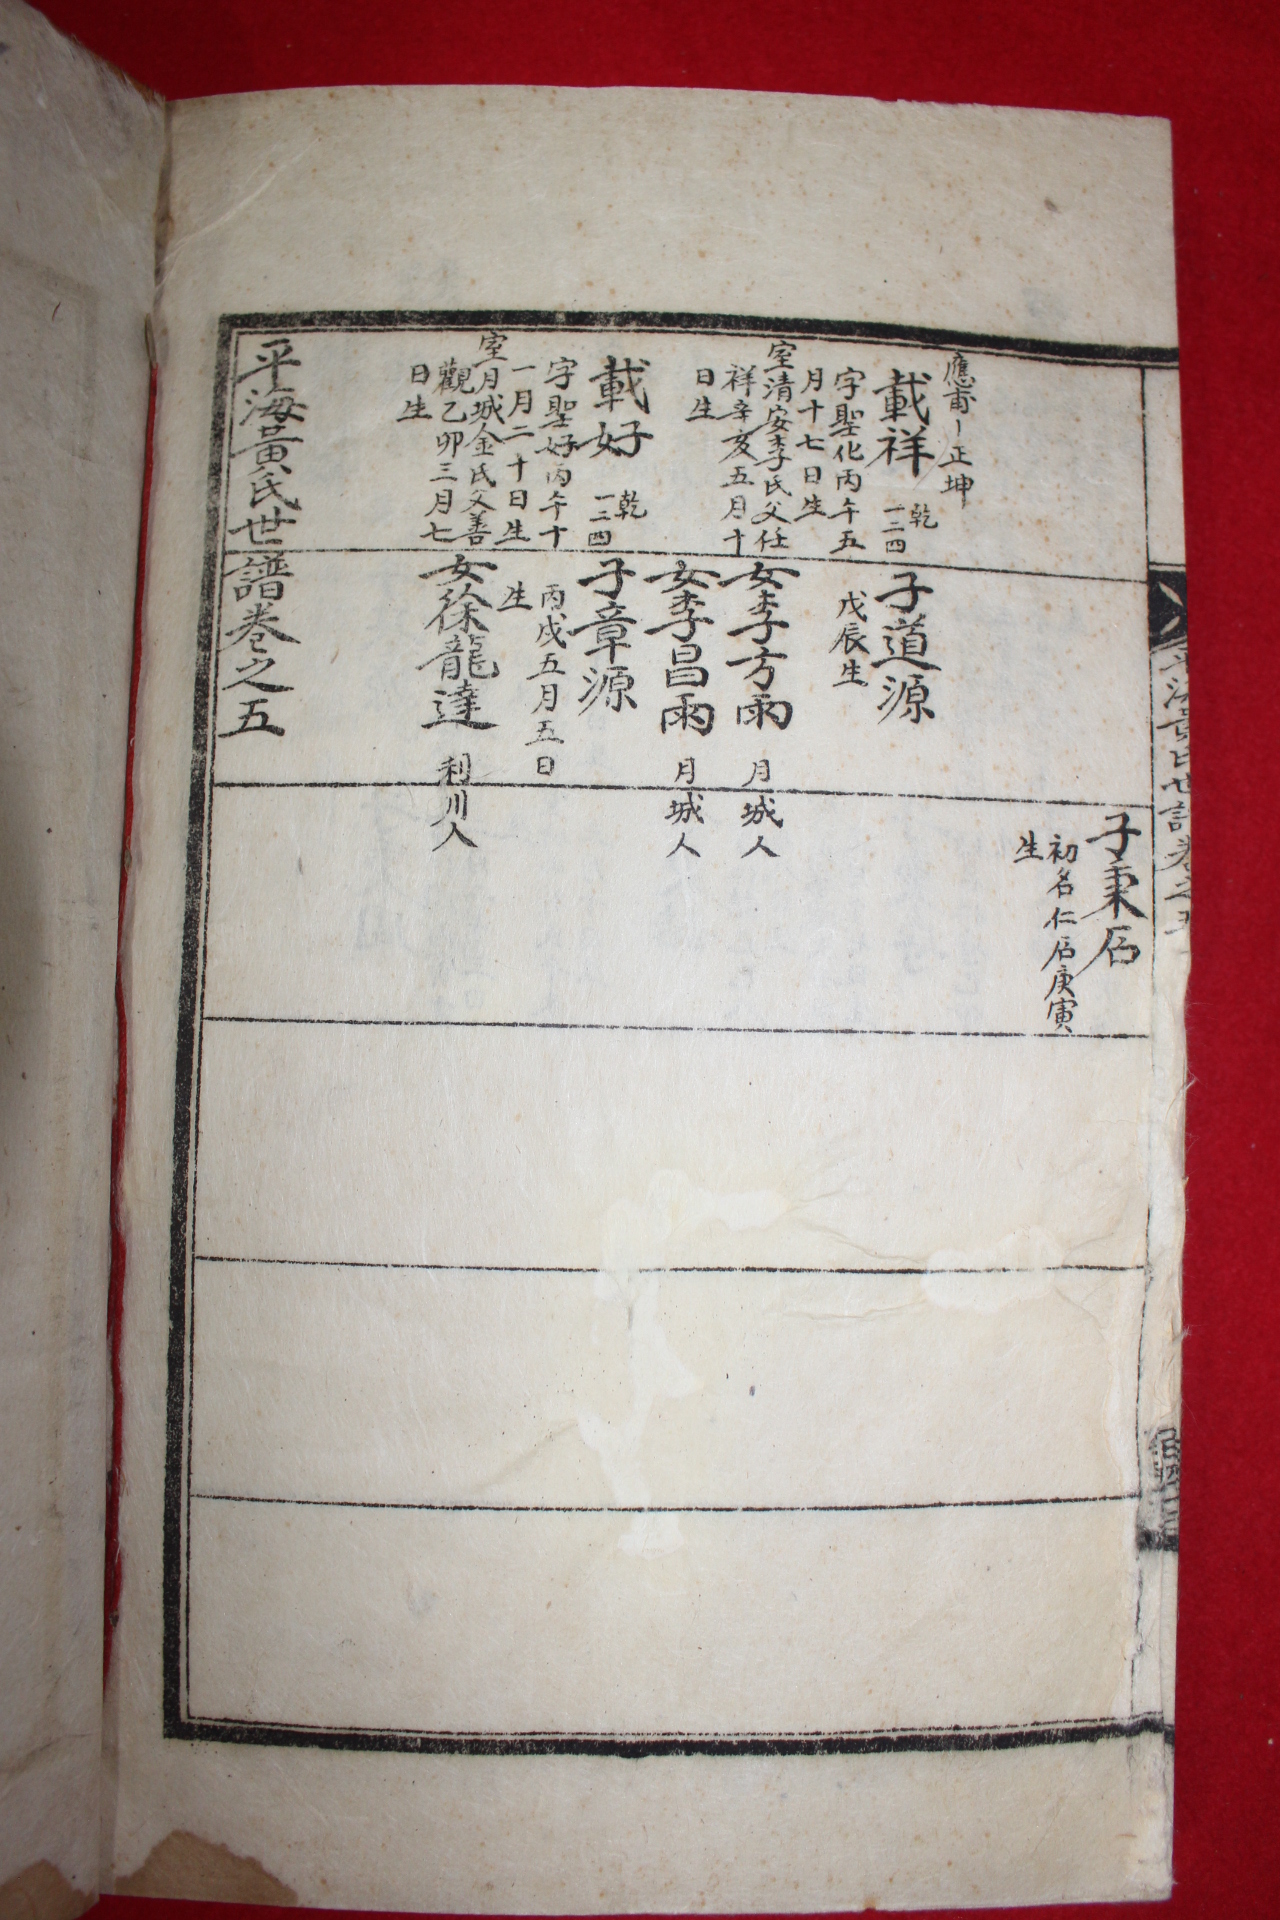 平海黃氏世譜卷之五
子秉后
初名仁后庚寅
生
應甯 正坤
載祥
乾
一二四
字聖化丙午五
月十七日生
室清安李氏父任
祥辛亥五月十
日生
子道源
戊辰生
女李方雨 月城人
女李昌雨 月城人
載好
乾
一二四
字聖好丙午十
一月二十日生
室月城金氏父善
觀乙卯三月七
日生
子章源
丙戌五月五日
生
女徐龍達 利川人
平海黃氏世譜卷之五